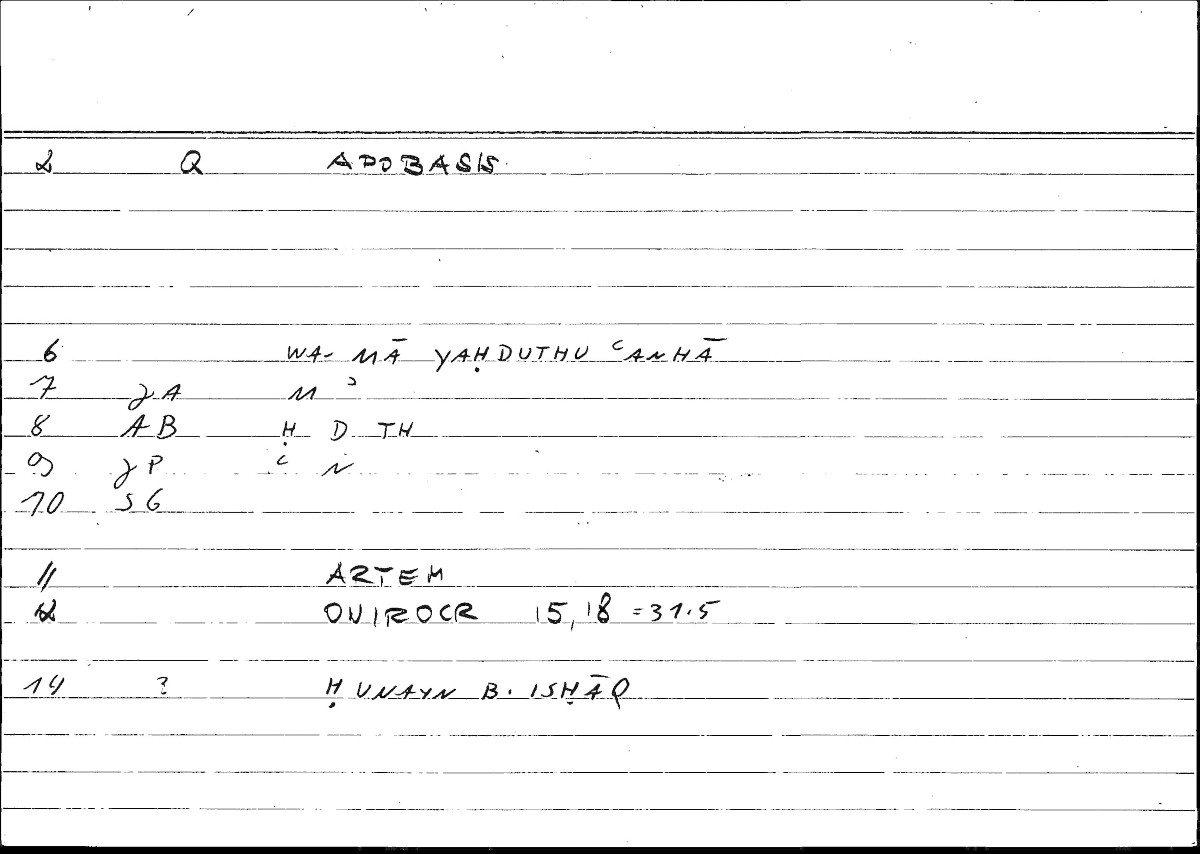 2 Q APOBASIS
6 WA- MĀ YAḤDUTHU ʿANHĀ
7 JA M ʾ
8 AB Ḥ D TH
9 JP ʿ N
10 SG
11 ARTEM
12 ONIROCR 15,18 = 31.5
14 ? ḤUNAYN B. ISḤĀQ